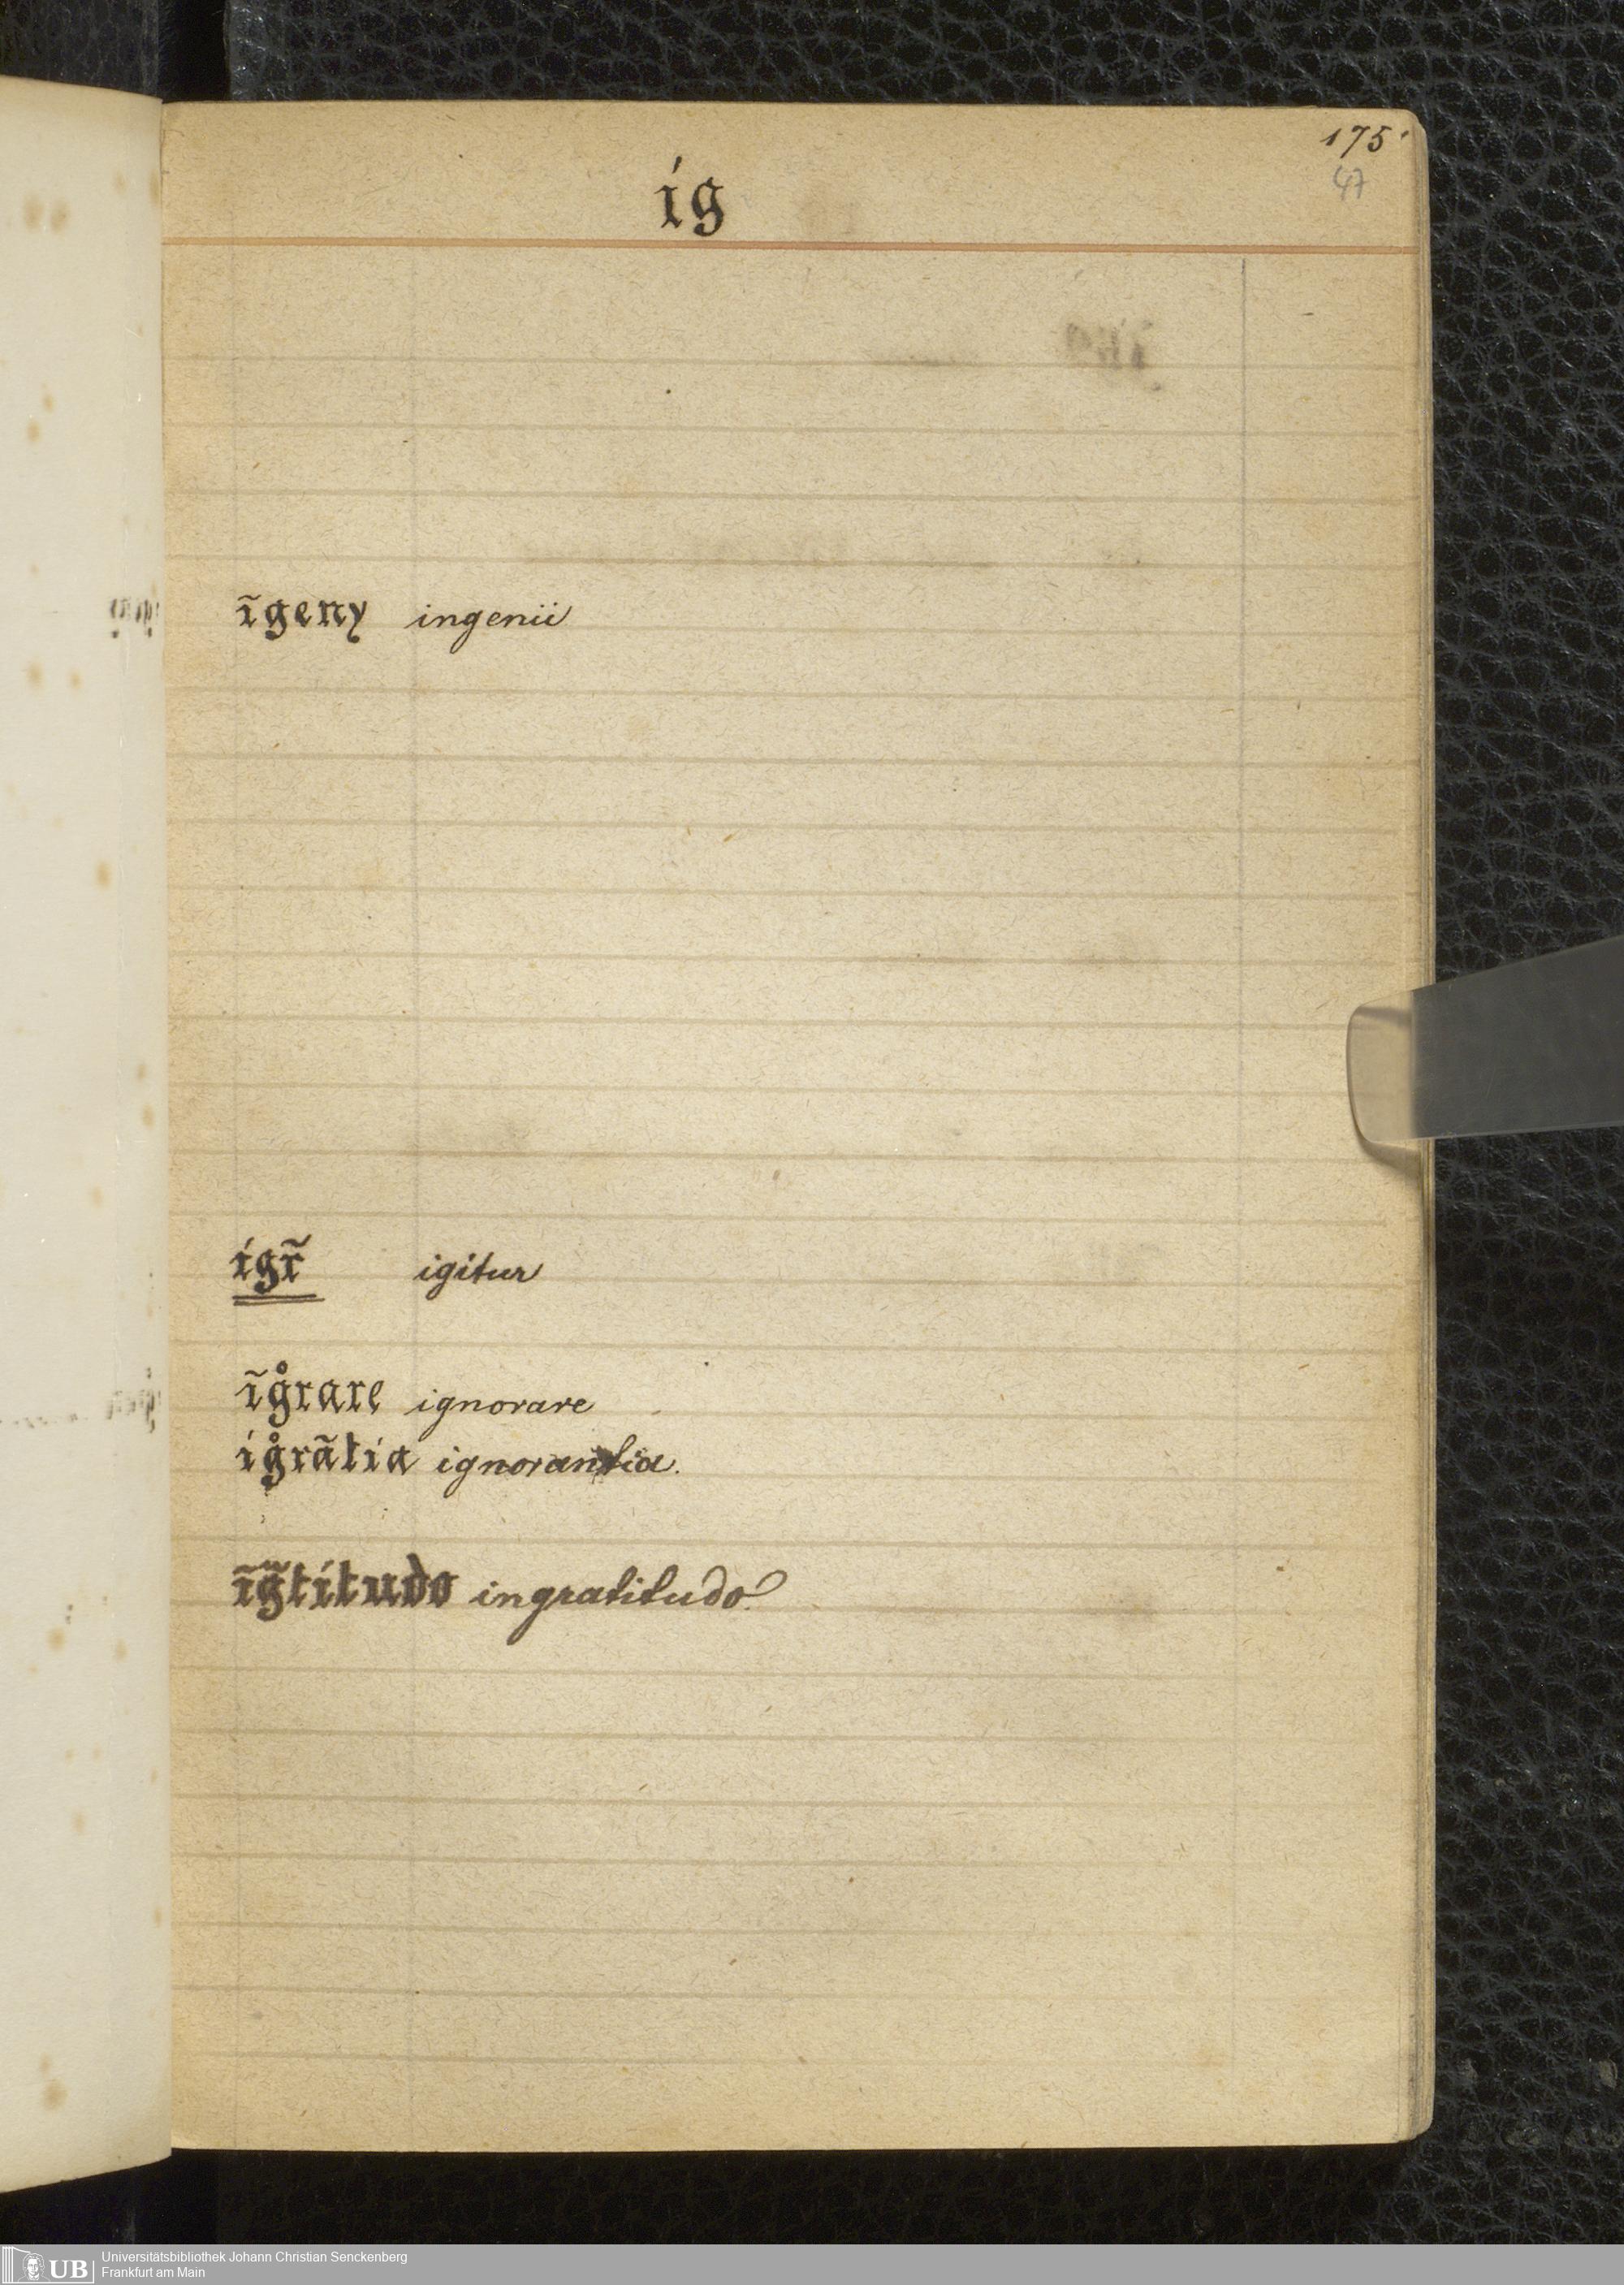 175.
47
ig
ĩgeny ingenii
igr̃ igitur
ĩg̊rare ignorare
ig̊rãtia ignorantia.
ĩg̃titudo ingratitudo.
UB Universitätsbibliothek Johann Christian Senckenberg
Frankfurt am Main